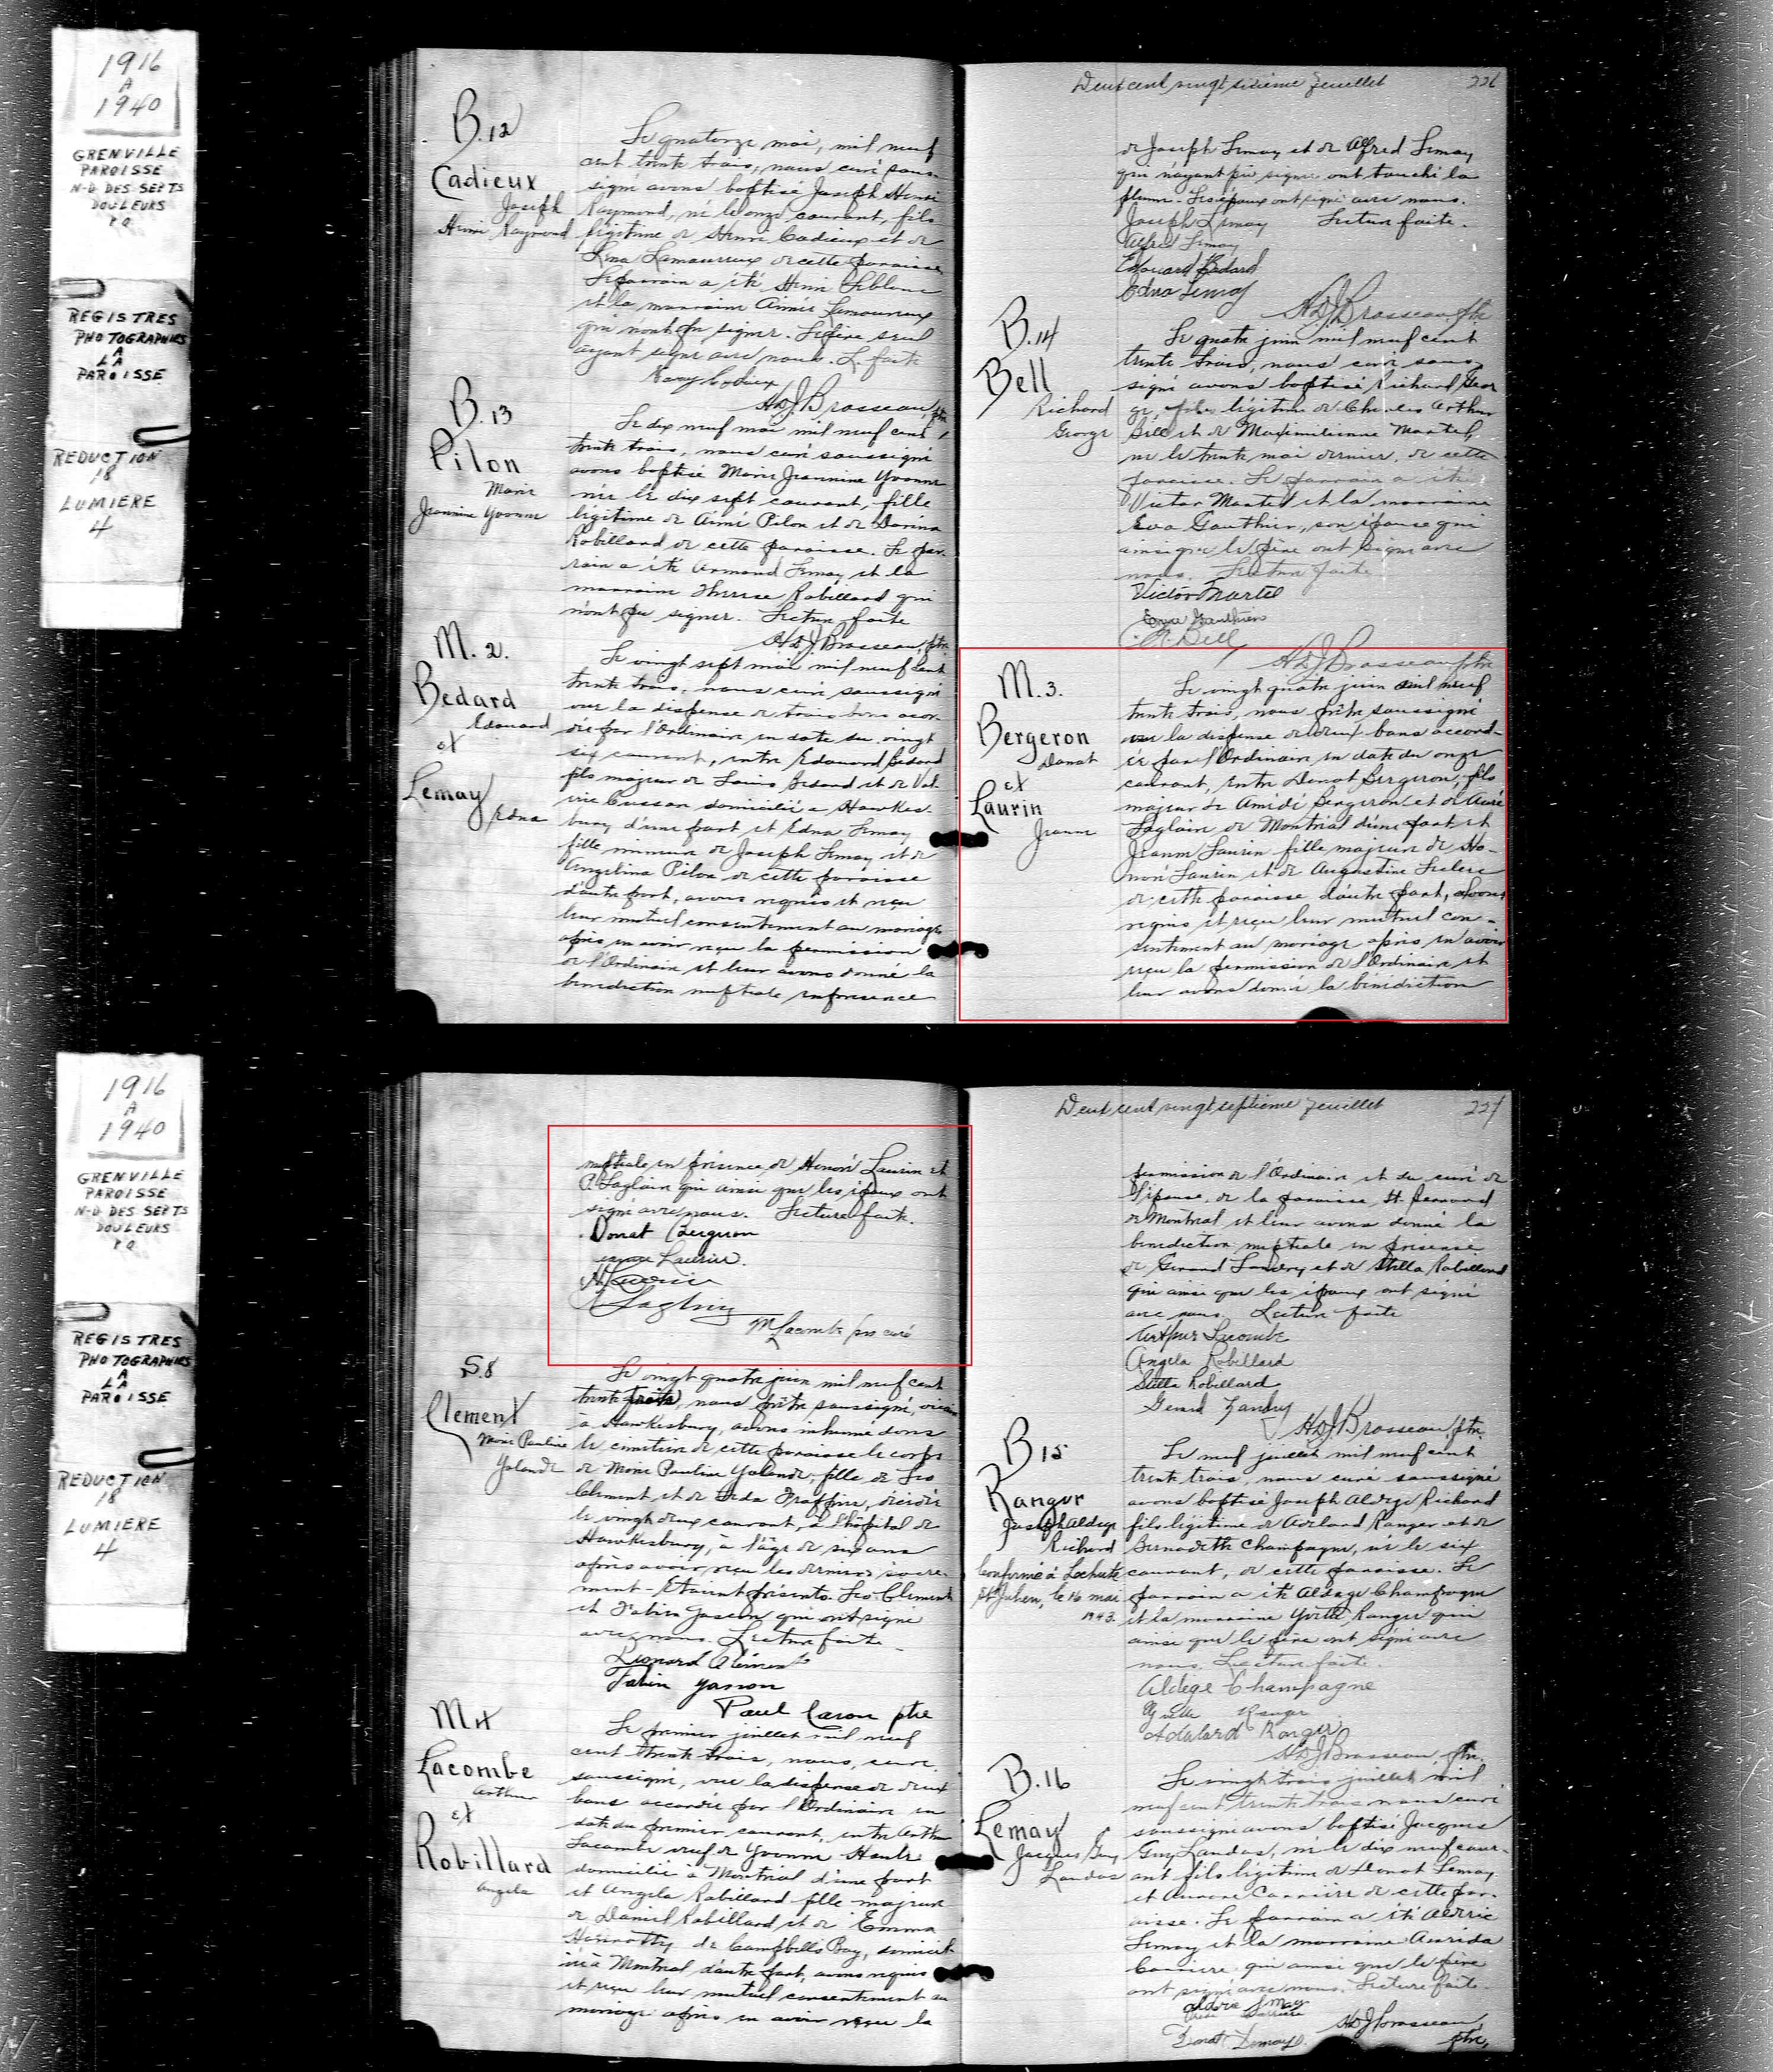 1916
A
1940
GRENVILLE
PAROISSE
N-D DES SEPTS
DOULEURS
P Q
REGISTRES
PHOTOGRAPHIES
A
LA
PAROISSE
REDUCTION
18
LUMIERE
4
B.12
Cadieux
Joseph
Henri Raymond
Le quatorze mai, mil neuf
cent trente trois, nous curé sous-
signé avons baptisé Joseph Henri
Raymond, né le onze courant, fils
légitime de Henri Cadieux et de
Lamoureux de cette paroisse
Le parrain a été Henri Leblanc
et la marraine Aimée Lamoureux
qui n'ont pu signer. Le père seul
ayant signé avec nous. L. faite
A.D.J. Brosseau, ptre
B.13
Pilon
Marie
Jeannine Yvonne
Le dix neuf mai mil neuf cent
trente trois, nous curé soussigné
avons baptisé Marie Jeannine Yvonne
née le dix sept courant, fille
légitime de Aimé Pilon et de Dorina
Robillard de cette paroisse. Le par-
rain a été Armand Lemay et la
marraine Therese Robillard qui
n'ont pu signer. Lecture faite
A.D.J. Brosseau, ptre
M. 2.
Bedard
Edouard
et
Lemay
Edna
Le vingt sept mai mil neuf cent
trente trois, nous curé soussigné
vue la dispense de trois bans accor-
dée par l'Ordinaire en date du vingt
six courant, entre Edouard Bedard
fils majeur de Louis Bedard et de Val-
domicilié à Hawkes-
bury d'une part et Edna Lemay
fille mineure de Joseph Lemay et de
Angelina Pilon de cette paroisse
d'autre part, avons requis et reçu
leur mutuel consentement au mariage
après en avoir reçu la permission
de l'Ordinaire et leur avons donné la
bénédiction nuptiale en présence
Deux cent vingt sixième feuillet 226
de Joseph Lemay et de Alfred Lemay
qui n'ayant pu signer ont touché la
plume. Les époux ont signé avec nous.
Joseph Lemay Lecture faite.
Alfred Lemay
Edouard Bedard
Edna Lemay
A.D.J. Brosseau ptre
B.14
Bell
Richard
George
Le quatre juin mil neuf cent
trente trois, nous curé sous-
signé avons baptisé Richard Geor
ge, fils légitime de Charles Arthur
Bell et de Maximilienne Martel,
né le trente mai dernier, de cette
paroisse. Le parrain a été
Victor Martel et la marraine
Eva Gauthier, son épouse qui
ainsi que le père ont signé avec
nous. Lecture faite
Victor Martel
Eva Gauthier
Bell
A.D.J. Brosseau ptre
M.3.
Bergeron
Donat
et
Laurin
Jeanne
Le vingt quatre juin mil neuf
trente trois, nous prêtre soussigné
vue la dispense de deux bans accord-
ée par l'Ordinaire en date du onze
courant, entre Donat Bergeron, fils
majeur de Amédé Bergeron et de
Laglair de Montréal d'une part et
Jeanne Laurin fille majeure de Ho-
noré Laurin et de Augustine Leclerc
de cette paroisse d'autre part, avons
requis et reçu leur mutuel con-
sentement au mariage après en avoir
reçu la permission de l'Ordinaire et
leur avons donné la bénédiction
1916
A
1940
GRENVILLE
PAROISSE
N-D DES SEPTS
DOULEURS
P Q
REGISTRES
PHOTOGRAPHIES
A
LA
PAROISSE
REDUCTION
18
LUMIERE
4
nuptiale en présence de Honoré Laurin et
Laglair qui ainsi que les époux ont
signé avec nous. Lecture faite.
Donat Bergeron
Laurin.
M Lacombe curé
S.8
Clement
Marie Pauline
Yolande
Le vingt quatre juin mil neuf cent
trente trois, nous prêtre soussigné, vicaire
à Hawkesbury, avons inhumé dans
le cimetière de cette paroisse le corps
de Marie Pauline Yolande, fille de Léo
Clement et de décédée
le vingt deux courant, à l'hôpital de
Hawkesbury, à l'âge de six ans
après avoir reçu les derniers sacre-
ment - Etaient présents Léo Clement
et Fabien Gascon qui ont signé
avec nous. Lecture faite -
Léonard Clément
Paul Caron ptre
M 4
Lacombe
Arthur
et
Robillard
Angela
Le premier juillet mil neuf
cent trente trois, nous, curé
soussigné, vue la dispense de deux
bans accordée par l'Ordinaire en
date du premier courant, entre Arthur
Lacombe veuf de Yvonne
domicilié à Montréal d'une part
et Angela Robillard fille majeure
de Daniel Robillard et de Emma
de Campbells Bay, domicil-
iée à Montréal d'autre part, avons requis
et reçu leur mutuel consentement au
mariage après en avoir reçu la
Deux cent vingt septième feuillet 227
permission de l'Ordinaire et du curé de
l'épouse, de la paroisse St
de Montréal et leur avons donné la
bénédiction nuptiale en présence
de Gerard Landry et de Stella Robillard
qui ainsi que les époux ont signé
avec nous. Lecture faite
Arthur Lacombe
Angela Robillard
Stella Robillard
Gerard Landry
A.D.J. Brosseau ptre.
B 15
Ranger
Joseph Aldège
Richard
Confirmé à Lachute
St Julien, le 16 mai
1943.
Le neuf juillet mil neuf cent
trente trois nous curé soussigné
avons baptisé Joseph Aldège Richard
fils légitime de Adélard Ranger et de
Bernadette Champagne, né le six
courant, de cette paroisse. Le
parrain a été Aldège Champagne
et la marraine Yvette Ranger qui
ainsi que le père ont signé avec
nous. Lecture faite.
Aldège Champagne
Ranger
Adelard Ranger
A.D.J. Brosseau, ptre.
B.16
Lemay
Jacques Guy
Landas
Le vingt trois juillet mil
neuf cent trente trois nous curé
soussigné avons baptisé Jacques
Guy Landas, né le dix neuf cour-
ant fils légitime de Donat Lemay
et Aurore Carrière de cette par-
oisse. Le parrain a été Aldéric
Lemay et la marraine Aurida
Carrière qui ainsi que le père
ont signé avec nous. Lecture faite.
Donat Lemay.
A.D.J. Brosseau,
ptre,